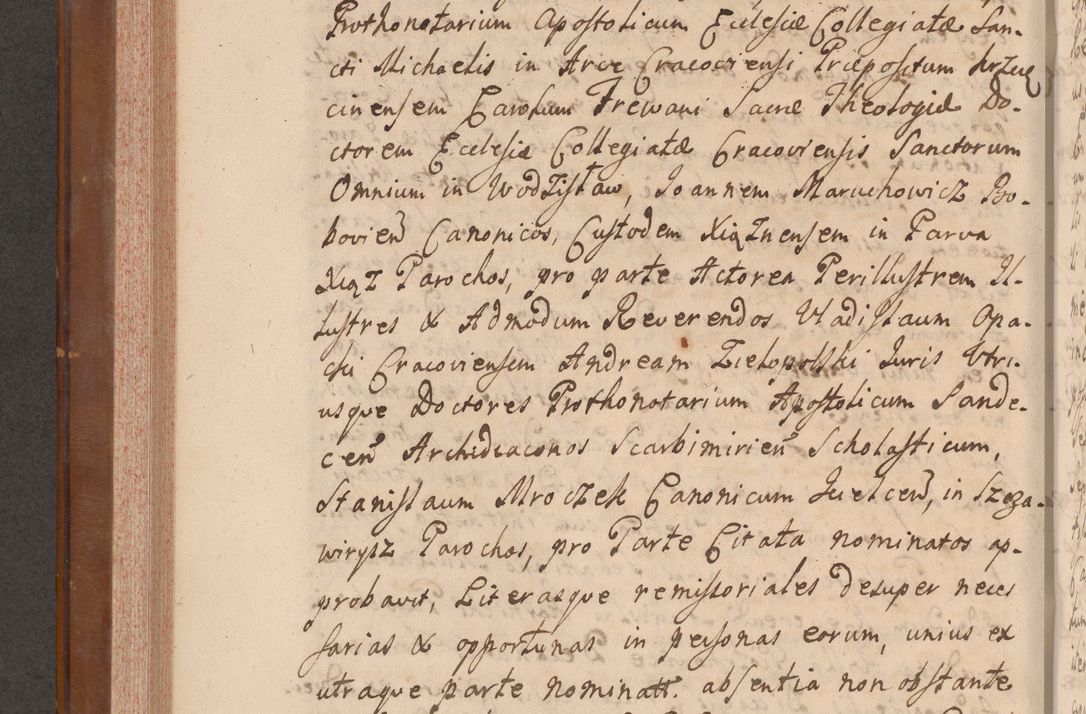 Prothonotarium Apostolicum Ecclesiæ Collegiatæ San-
cti Michaelis in Arce Cracoviensi Præpositum Krzcie
cinensem Carolum Trewani Sacræ Theologiæ Do-
ctorem Ecclesiæ Collegiatæ Cracoviensis Sanctorum
Omnium in Wodzisław, Joannem Maruchowicz Bo-
bovien Canonicos, Custodem Xiąznensem in Parva
Xiąz Parochos, pro parte Actorea Perillustrem Il-
lustres & Admodum Reverendos Vladislaum Opa-
cki Cracoviensem Andream Zielopolski Juris Utri-
usque Doctores Prothonotarium Apostolicum Sande-
cen Archidiaconos Scarbimirien Scholasticum,
Stanislaum Mroczek Canonicum Juelcen, in Szcza-
wirysz Parochos, pro Parte Citata nominatos ap-
probavit, Literasque remissoriales desuper neces
sarias & opportunas in personas eorum, unius ex
utraque parte nominatt. absentia non obstante